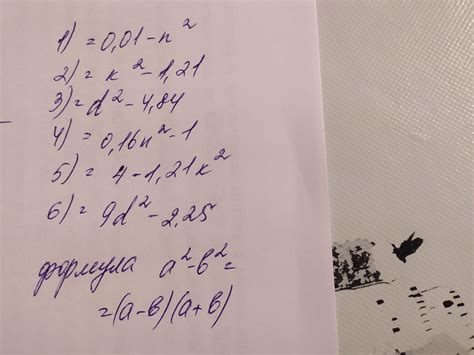 1) = 0,01 - n²
2) = k² - 1,21
3) = d² - 4,84
4) = 0,16n² - 1
5) = 4 - 1,21k²
6) = 9d² - 2,25
формула a² - b² =
= (a - b) (a + b)